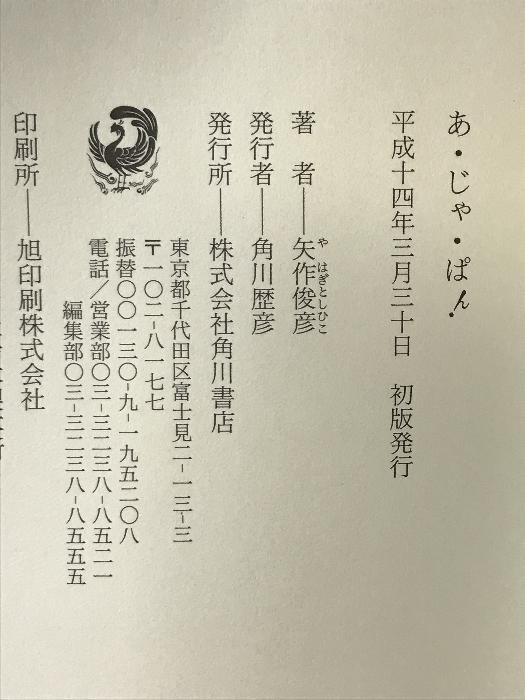 あ・じゃ・ぱん.
平成十四年三月三十日 初版発行
著 者――矢作俊彦
やはぎとしひこ
発行者――角川歴彦
発行所――株式会社角川書店
東京都千代田区富士見二-一三-三
〒一〇二-八一七七
振替〇〇一三〇-九-一九五二〇八
電話／営業部〇三-三二三八-八五二一
編集部〇三-三二三八-八五五五
印刷所――旭印刷株式会社